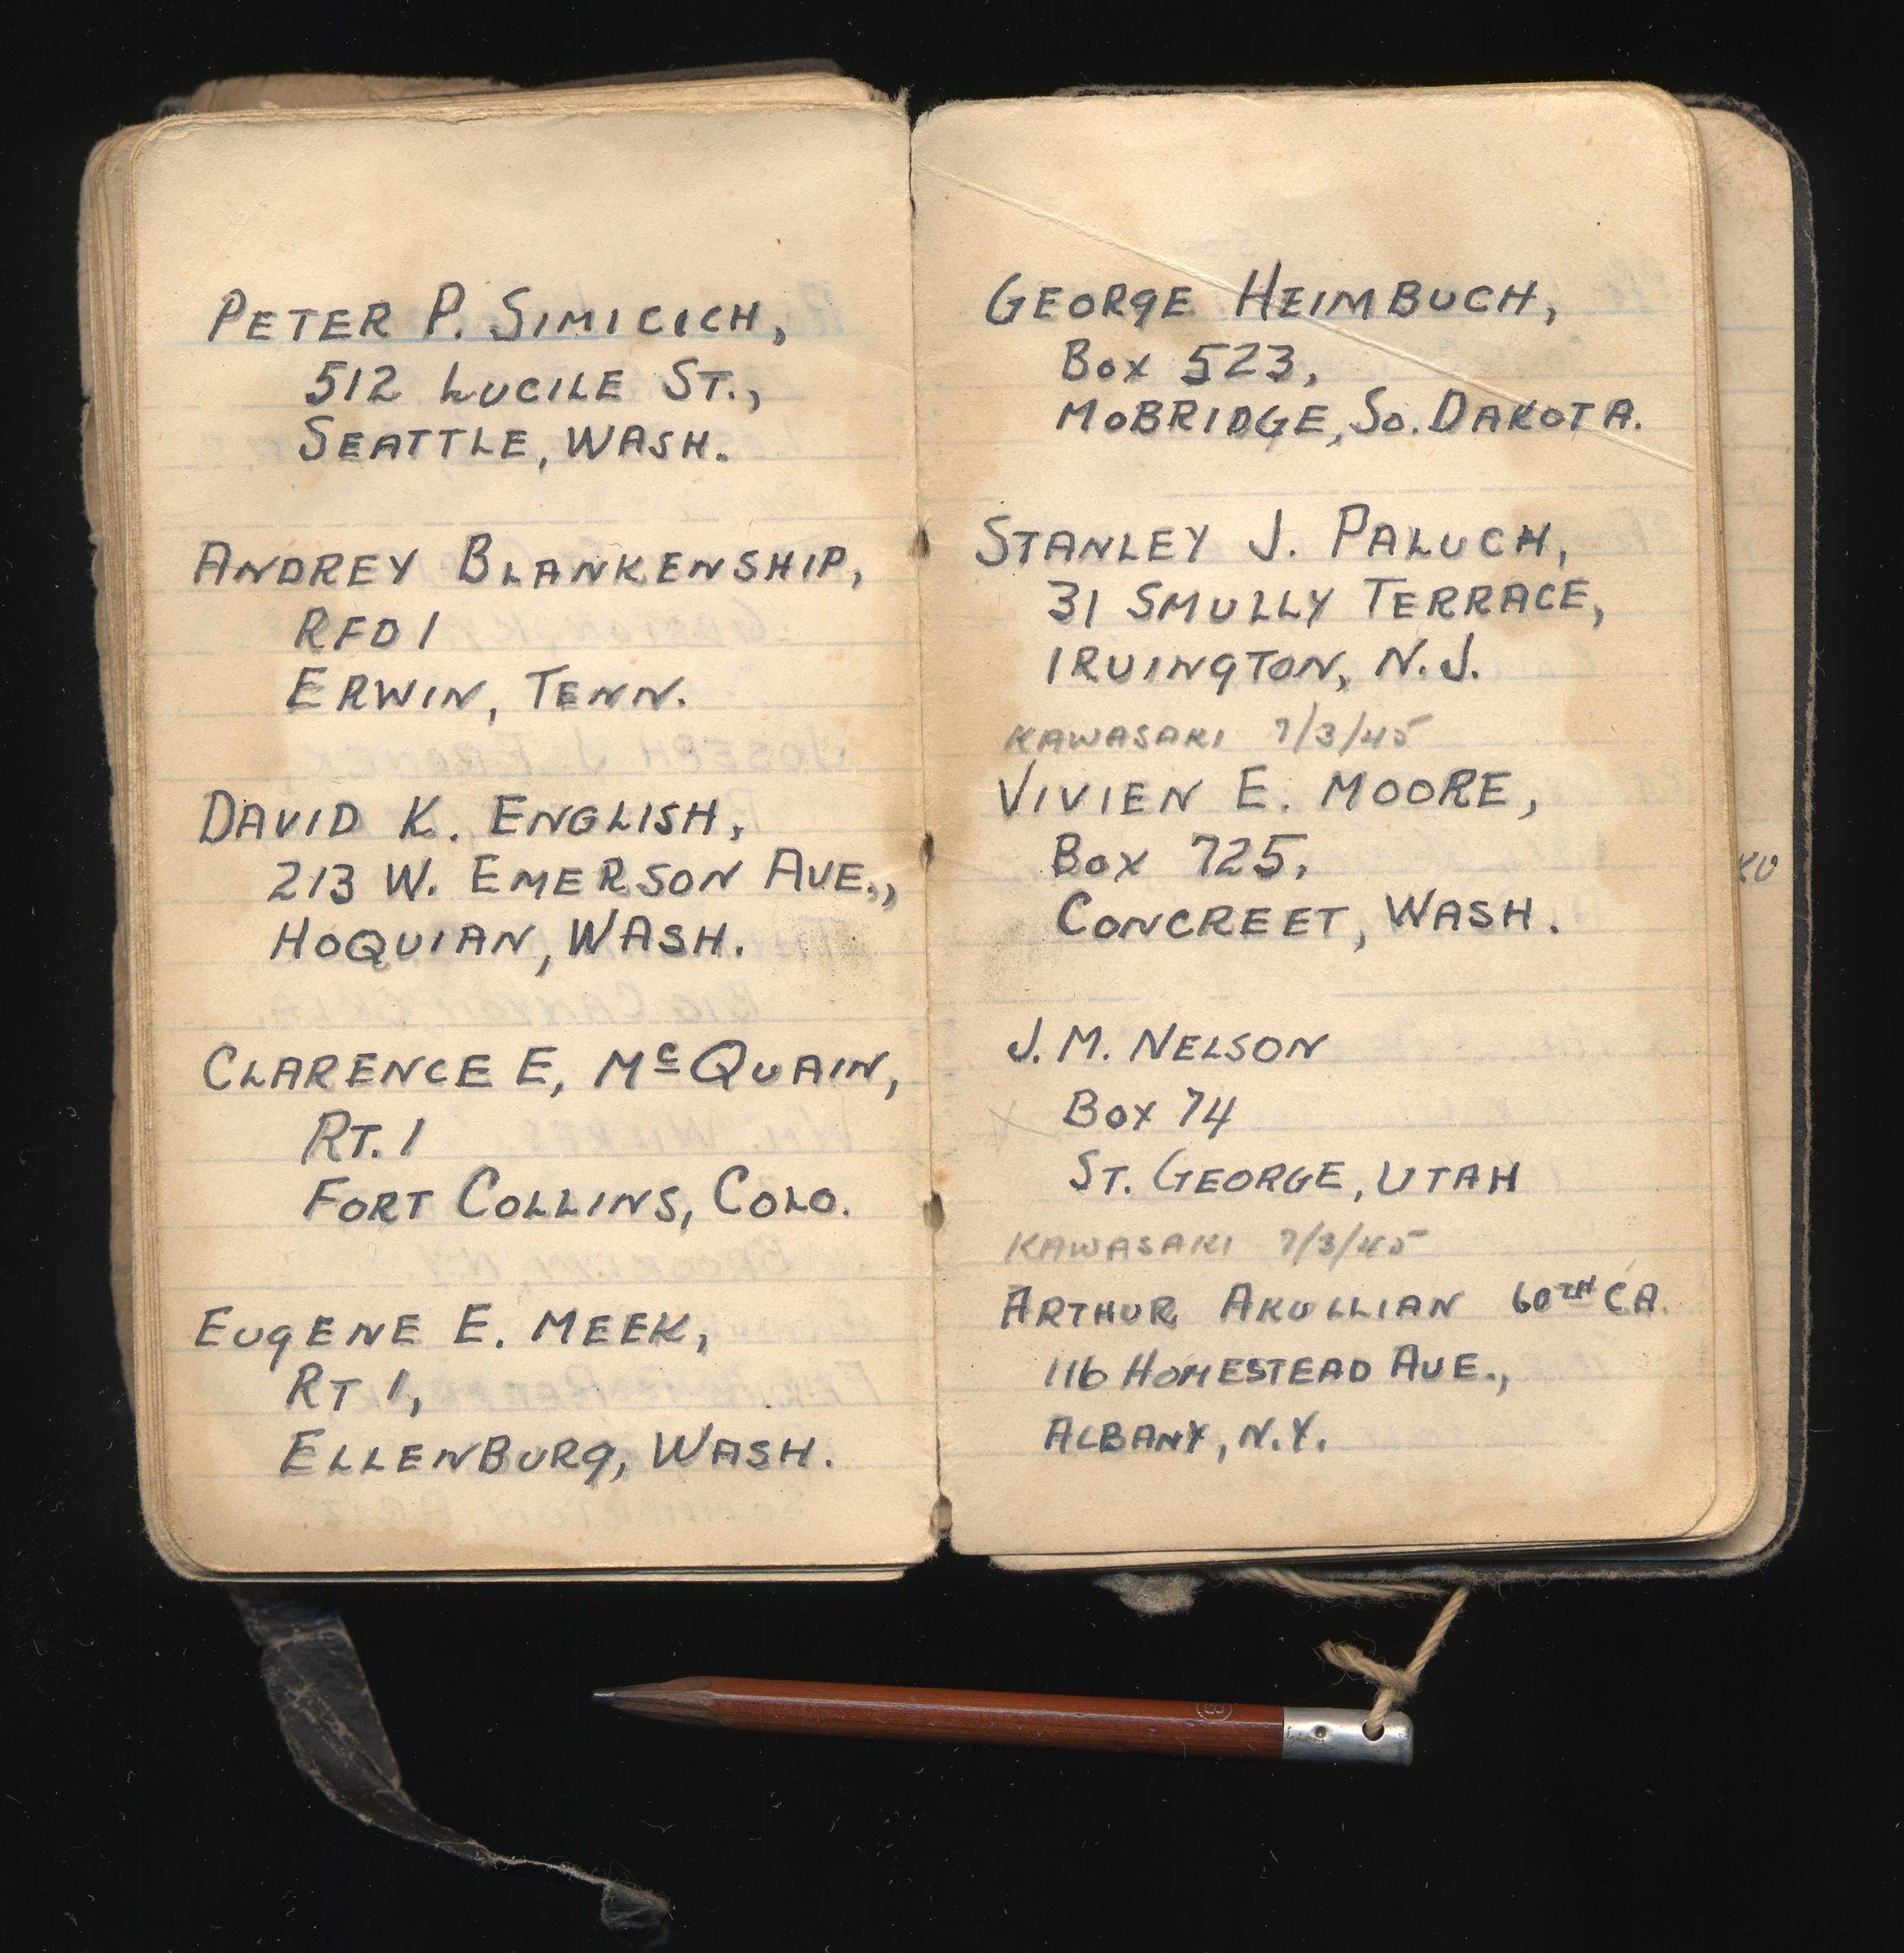 PETER P. SIMICICH,
512 LUCILE ST.,
SEATTLE, WASH.
ANDREY BLANKENSHIP,
RFD 1
ERWIN, TENN.
DAVID K. ENGLISH,
213 W. EMERSON AVE.,
HOQUIAN, WASH.
CLARENCE E, McQUAIN,
RT. 1
FORT COLLINS, COLO.
EUGENE E. MEEK,
RT 1,
ELLENBURG, WASH.
GEORGE HEIMBUCH,
BOX 523,
MOBRIDGE, SO. DAKOTA.
STANLEY J. PALUCH,
31 SMULLY TERRACE,
IRVINGTON, N.J.
KAWASAKI 7/3/45
VIVIEN E. MOORE,
BOX 725,
CONCREET, WASH.
J. M. NELSON
BOX 74
ST. GEORGE, UTAH
KAWASAKI 7/3/45
ARTHUR AKULLIAN 60TH CA.
116 HOMESTEAD AVE.,
ALBANY, N.Y.